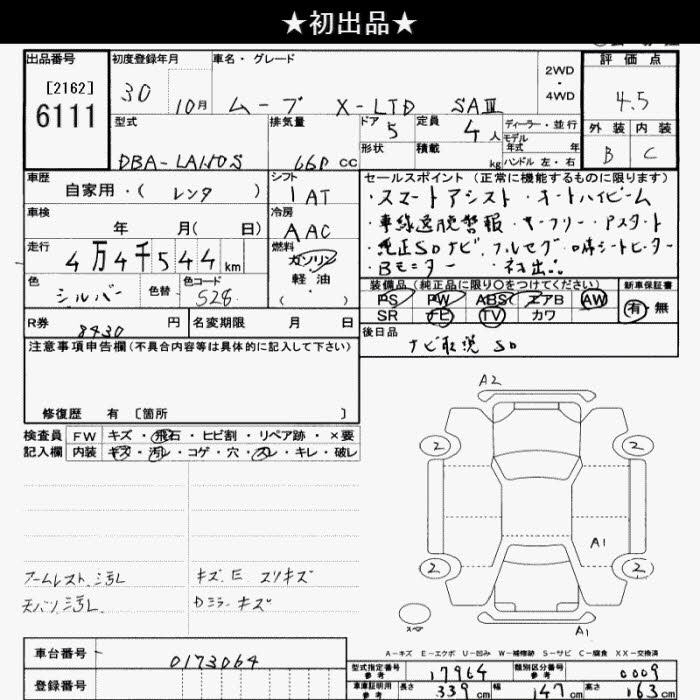 ★初出品★
出品番号
[2162]
6111
初度登録年月
30
10月
車名・グレード
ムーブ X-LTD SAⅢ
2WD
・
4WD
評価点
4.5
外装 内装
B C
型式
DBA-LA150S
排気量
660 CC
ドア
5
形状
定員
4人
積載
kg
ディーラー・並行
モデル
年式 年
ハンドル 左・右
車歴
自家用・( レンタ )
シフト
IAT
車検
年 月( 日)
冷房
AAC
走行
4万4千544km
燃料
ガソリン
軽油
( )
色
シルバー
色替
色コード
S28
R券
8430 円
名変期限 月 日
セールスポイント(正常に機能するものに限ります)
・スマートアシスト・オートハイビーム
・車線逸脱警報・キーフリー・Pスタート
・純正SDナビ.フルセグ・D席シートヒーター
・Bモニター ・初出品
装備品(純正品に限り○をつけてください)
PS PW ABS エアB AW
SR TV カワ
新車保証書
有・無
後日品
ナビ取説 SD
注意事項申告欄(不具合内容等は具体的に記入して下さい)
修復歴 有 〔箇所 〕
検査員
記入欄
FW キズ・飛石・ヒビ割・リペア跡・×要
内装 キズ・汚レ・コゲ・穴・スレ・キレ・破レ
アームレスト汚レ
天バリ汚レ
キズ.E スリキズ
Dミラーキズ
A2
2
2
A1
2
2
スペア
A1
A-キズ E-エクボ U-凹み W-補修跡 S-サビ C-腐食 XX-交換済
車台番号
0173064
登録番号
型式指定番号
参考
17964
類別区分番号
参考
0009
車庫証明用
参考
長さ 339cm 幅 147cm 高さ 163cm